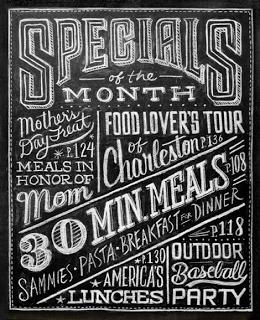 SPECIALS
of the
MONTH
Mother's
Day Treat
P.124
MEALS IN
HONOR OF
Mom
FOOD LOVER'S TOUR
of P.136
Charleston
30 MIN. MEALS P.108
SAMMIES • PASTA • BREAKFAST FOR DINNER
P.130
AMERICA'S
LUNCHES
P.118
OUTDOOR
Baseball
PARTY